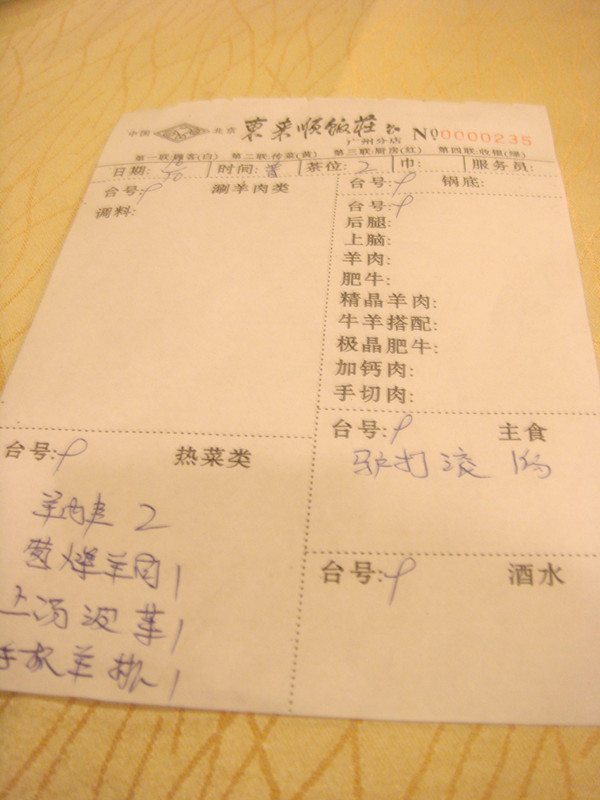 中国 北京 東来顺飯莊
广州分店 No0000235
第一联:顾客(白) 第二联:传菜(黄) 第三联:厨房(红) 第四联:收银(绿)
日期: 时间: 茶位:2 巾: 服务员:
台号: 涮羊肉类
调料:
台号: 锅底:
台号:
后腿:
上脑:
羊肉:
肥牛:
精晶羊肉:
牛羊搭配:
极晶肥牛:
加钙肉:
手切肉:
台号: 热菜类
羊肉串 2
葱爆羊肉 1
上汤菠菜 1
手抓羊排 1
台号: 主食
驴打滚 1
台号: 酒水